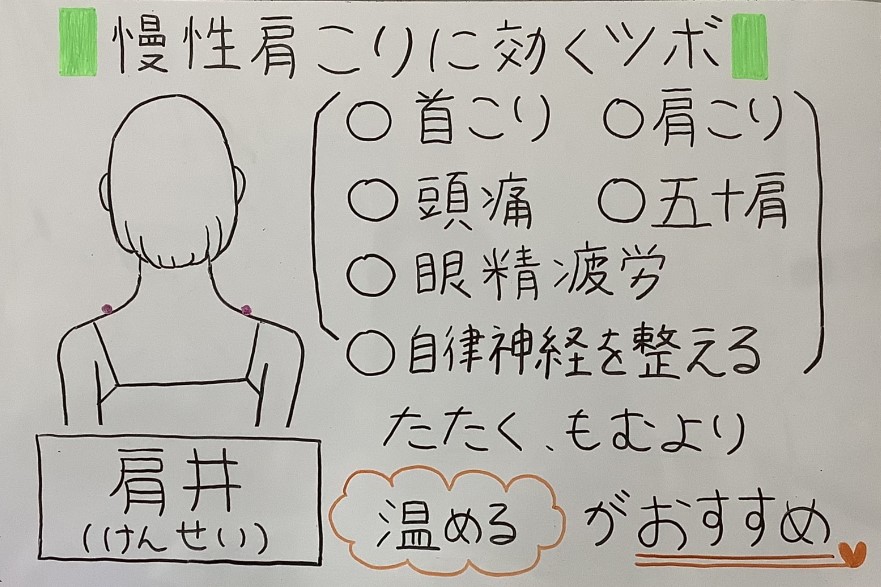 慢性肩こりに効くツボ
○首こり ○肩こり
○頭痛 ○五十肩
○眼精疲労
○自律神経を整える
たたく、もむより
温めるがおすすめ
肩井
(けんせい)